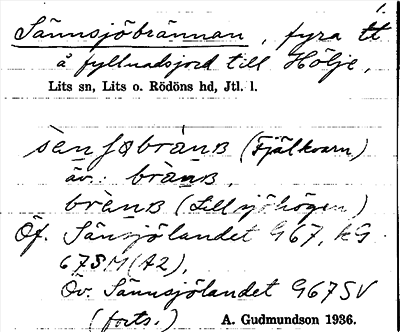 1.
Sännsjöbrännan, fyra tt
å fyllnadsjord till Hölje,
Lits sn, Lits o. Rödöns hd, Jtl. l.
(Fjälkvarn)
äv.:
(Lillsjöhögen)
Öf. Sännsjölandet G67, kG
67SM(A2),
Öv. Sännsjölandet G67SV
(forts.) A. Gudmundson 1936.